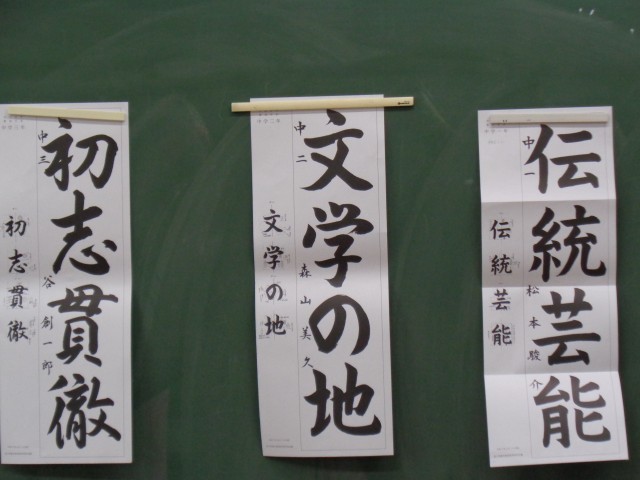 伝統芸能
中一
松本駿介
伝統芸能
文学の地
中二
森山美久
文学の地
初志貫徹
中三
谷創一郎
初志貫徹